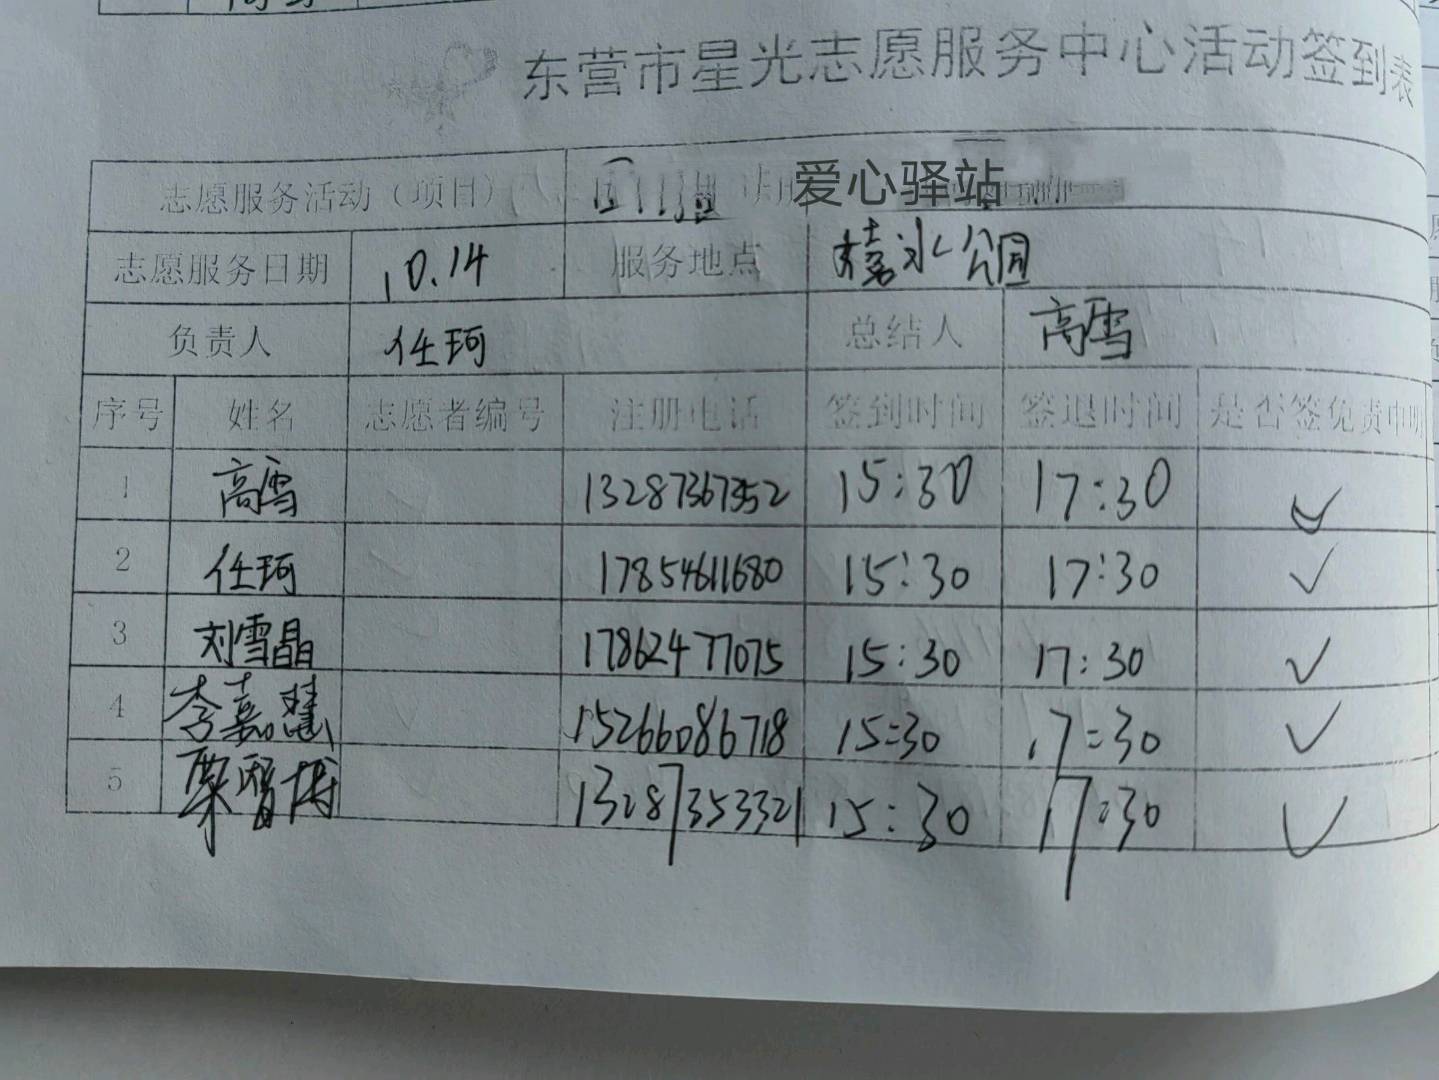 东营市星光志愿服务中心活动签到表
志愿服务活动（项目） 爱心驿站
志愿服务日期 10.14 服务地点 公园
负责人 任珂 总结人 高雪
序号 姓名 志愿者编号 注册电话 签到时间 签退时间 是否签免责申明
1 高雪 13287367352 15:30 17:30 ✓
2 任珂 17854611680 15:30 17:30 ✓
3 刘雪晶 17862477075 15:30 17:30 ✓
4 李嘉慧 15266086718 15:30 17:30 ✓
5 智博 13287353321 15:30 17:30 ✓